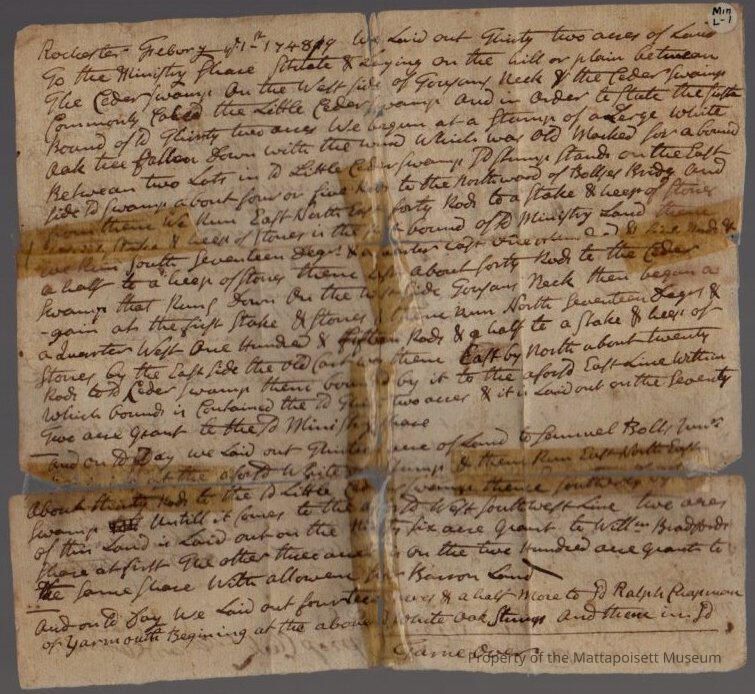 Min
L-1
Rochester Frebory ye 1st 1748/9 We Laid out Thirty two acres of Land
To the Ministry Share Situate & Laying on the hill or plain between
The Ceder Swamp On the West Side of Goyans Neck & the Ceder Swamp
Commonly Caled the Little Ceder Swamp and in order to State the
Bound of sd Thirty two acres We begun at a Stump of a Large White
oak tree fallen Down with the wind Which was old Marked for a bound
Betwean two Lots in sd Little Ceder Swamp sd Stump Stands on the East
Side sd Swamp about four or five Rods to the Northward of Bolleses Bridg and
from thence We Run East North East forty Rods to a Stake & heep of Stones
Stake & heep of Stones is the bound of sd Ministry Land
We Run South Seventeen Degrs & a quarter East one hundred & five Rods &
a half to a heep of Stones thence about forty Rods to the Ceder
Swamp that Runs Down On the West Side Goyans Neck then began a
-gain at the first Stake & Stones thence Run North Seventeen Degrs &
a Quarter West One Hundred & fifteen Rods & a half to a Stake & heep of
Stones by the East Side the old thence East by North about twenty
Rods to sd Ceder Swamp then bounded by it to the aforsd East Line Within
Which bounds is Contained the sd Thirty two acres & it is Laid out on the Seventy
Two acre grant to the sd Ministry Share
And on sd Day we Laid out acre of Land to Samuel Bolls Junr
at the aforsd White Stump & thence Run East North East
about thirty Rods to the sd Little Ceder Swamp thence Southerly by sd
Swamp Untill it Comes to the aforsd West Southwest Line two acres
of this Land is Laid out on the Six acre grant to Willm Bradfords
Share at first The other three acres is on the two Hundred acre grant to
the Same Share With allowence for Barron Land
And on sd Day We Laid out fourteen acres & a half More to sd Ralph Chapman
of Yarmouth Begining at the above sd White oak Stump And thence in sd
Turne Over
Property of the Mattapoisett Museum